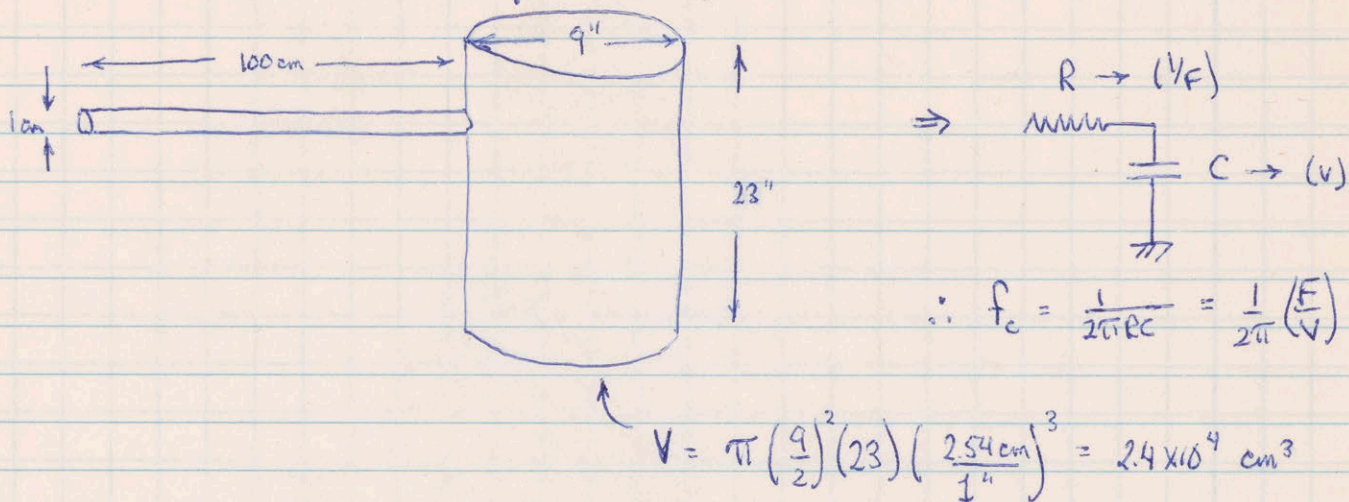 9"
100 cm
1 cm
23"
⇒
R → (1/F)
C → (V)
∴ f_c = 1/(2πRC) = 1/(2π) (F/V)
V = π(9/2)²(23)(2.54 cm/1")³ = 2.4 x10⁴ cm³